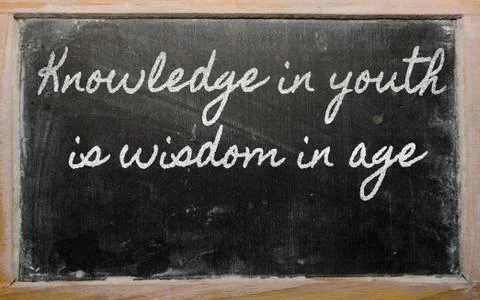 Knowledge in youth
is wisdom in age